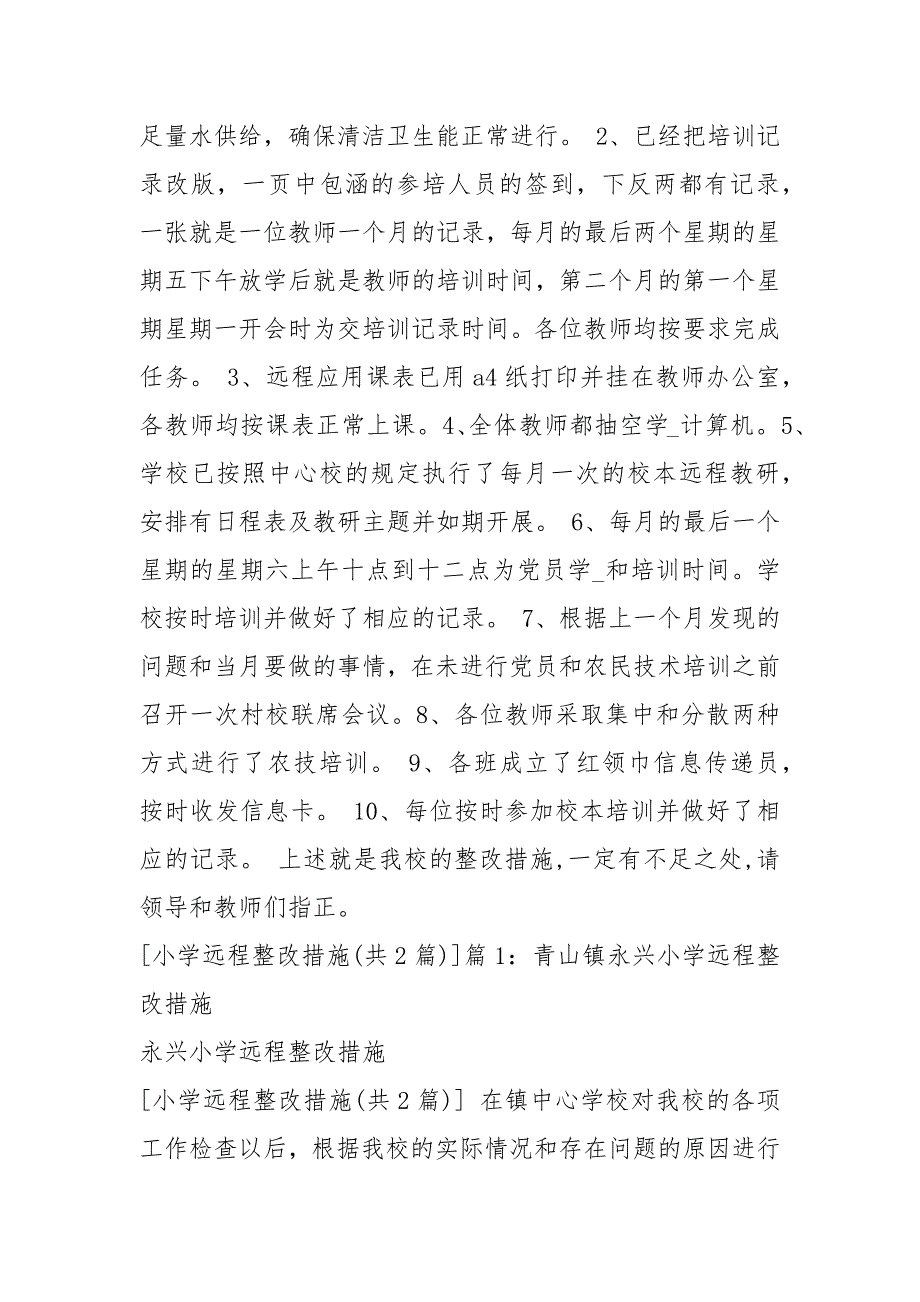 足量水供给，确保清洁卫生能正常进行。 2、已经把培训记
录改版，一页中包涵的参培人员的签到，下反两都有记录，
一张就是一位教师一个月的记录，每月的最后两个星期的星
期五下午放学后就是教师的培训时间，第二个月的第一个星
期星期一开会时为交培训记录时间。各位教师均按要求完成
任务。 3、远程应用课表已用 a4 纸打印并挂在教师办公室，
各教师均按课表正常上课。4、全体教师都抽空学_计算机。5、
学校已按照中心校的规定执行了每月一次的校本远程教研，
安排有日程表及教研主题并如期开展。 6、每月的最后一个
星期的星期六上午十点到十二点为党员学_和培训时间。学
校按时培训并做好了相应的记录。 7、根据上一个月发现的
问题和当月要做的事情，在未进行党员和农民技术培训之前
召开一次村校联席会议。8、各位教师采取集中和分散两种
方式进行了农技培训。 9、各班成立了红领巾信息传递员，
按时收发信息卡。 10、每位按时参加校本培训并做好了相
应的记录。 上述就是我校的整改措施,一定有不足之处,请
领导和教师们指正。
[小学远程整改措施(共 2 篇)]篇 1：青山镇永兴小学远程整
改措施
永兴小学远程整改措施
[小学远程整改措施(共 2 篇)] 在镇中心学校对我校的各项
工作检查以后，根据我校的实际情况和存在问题的原因进行